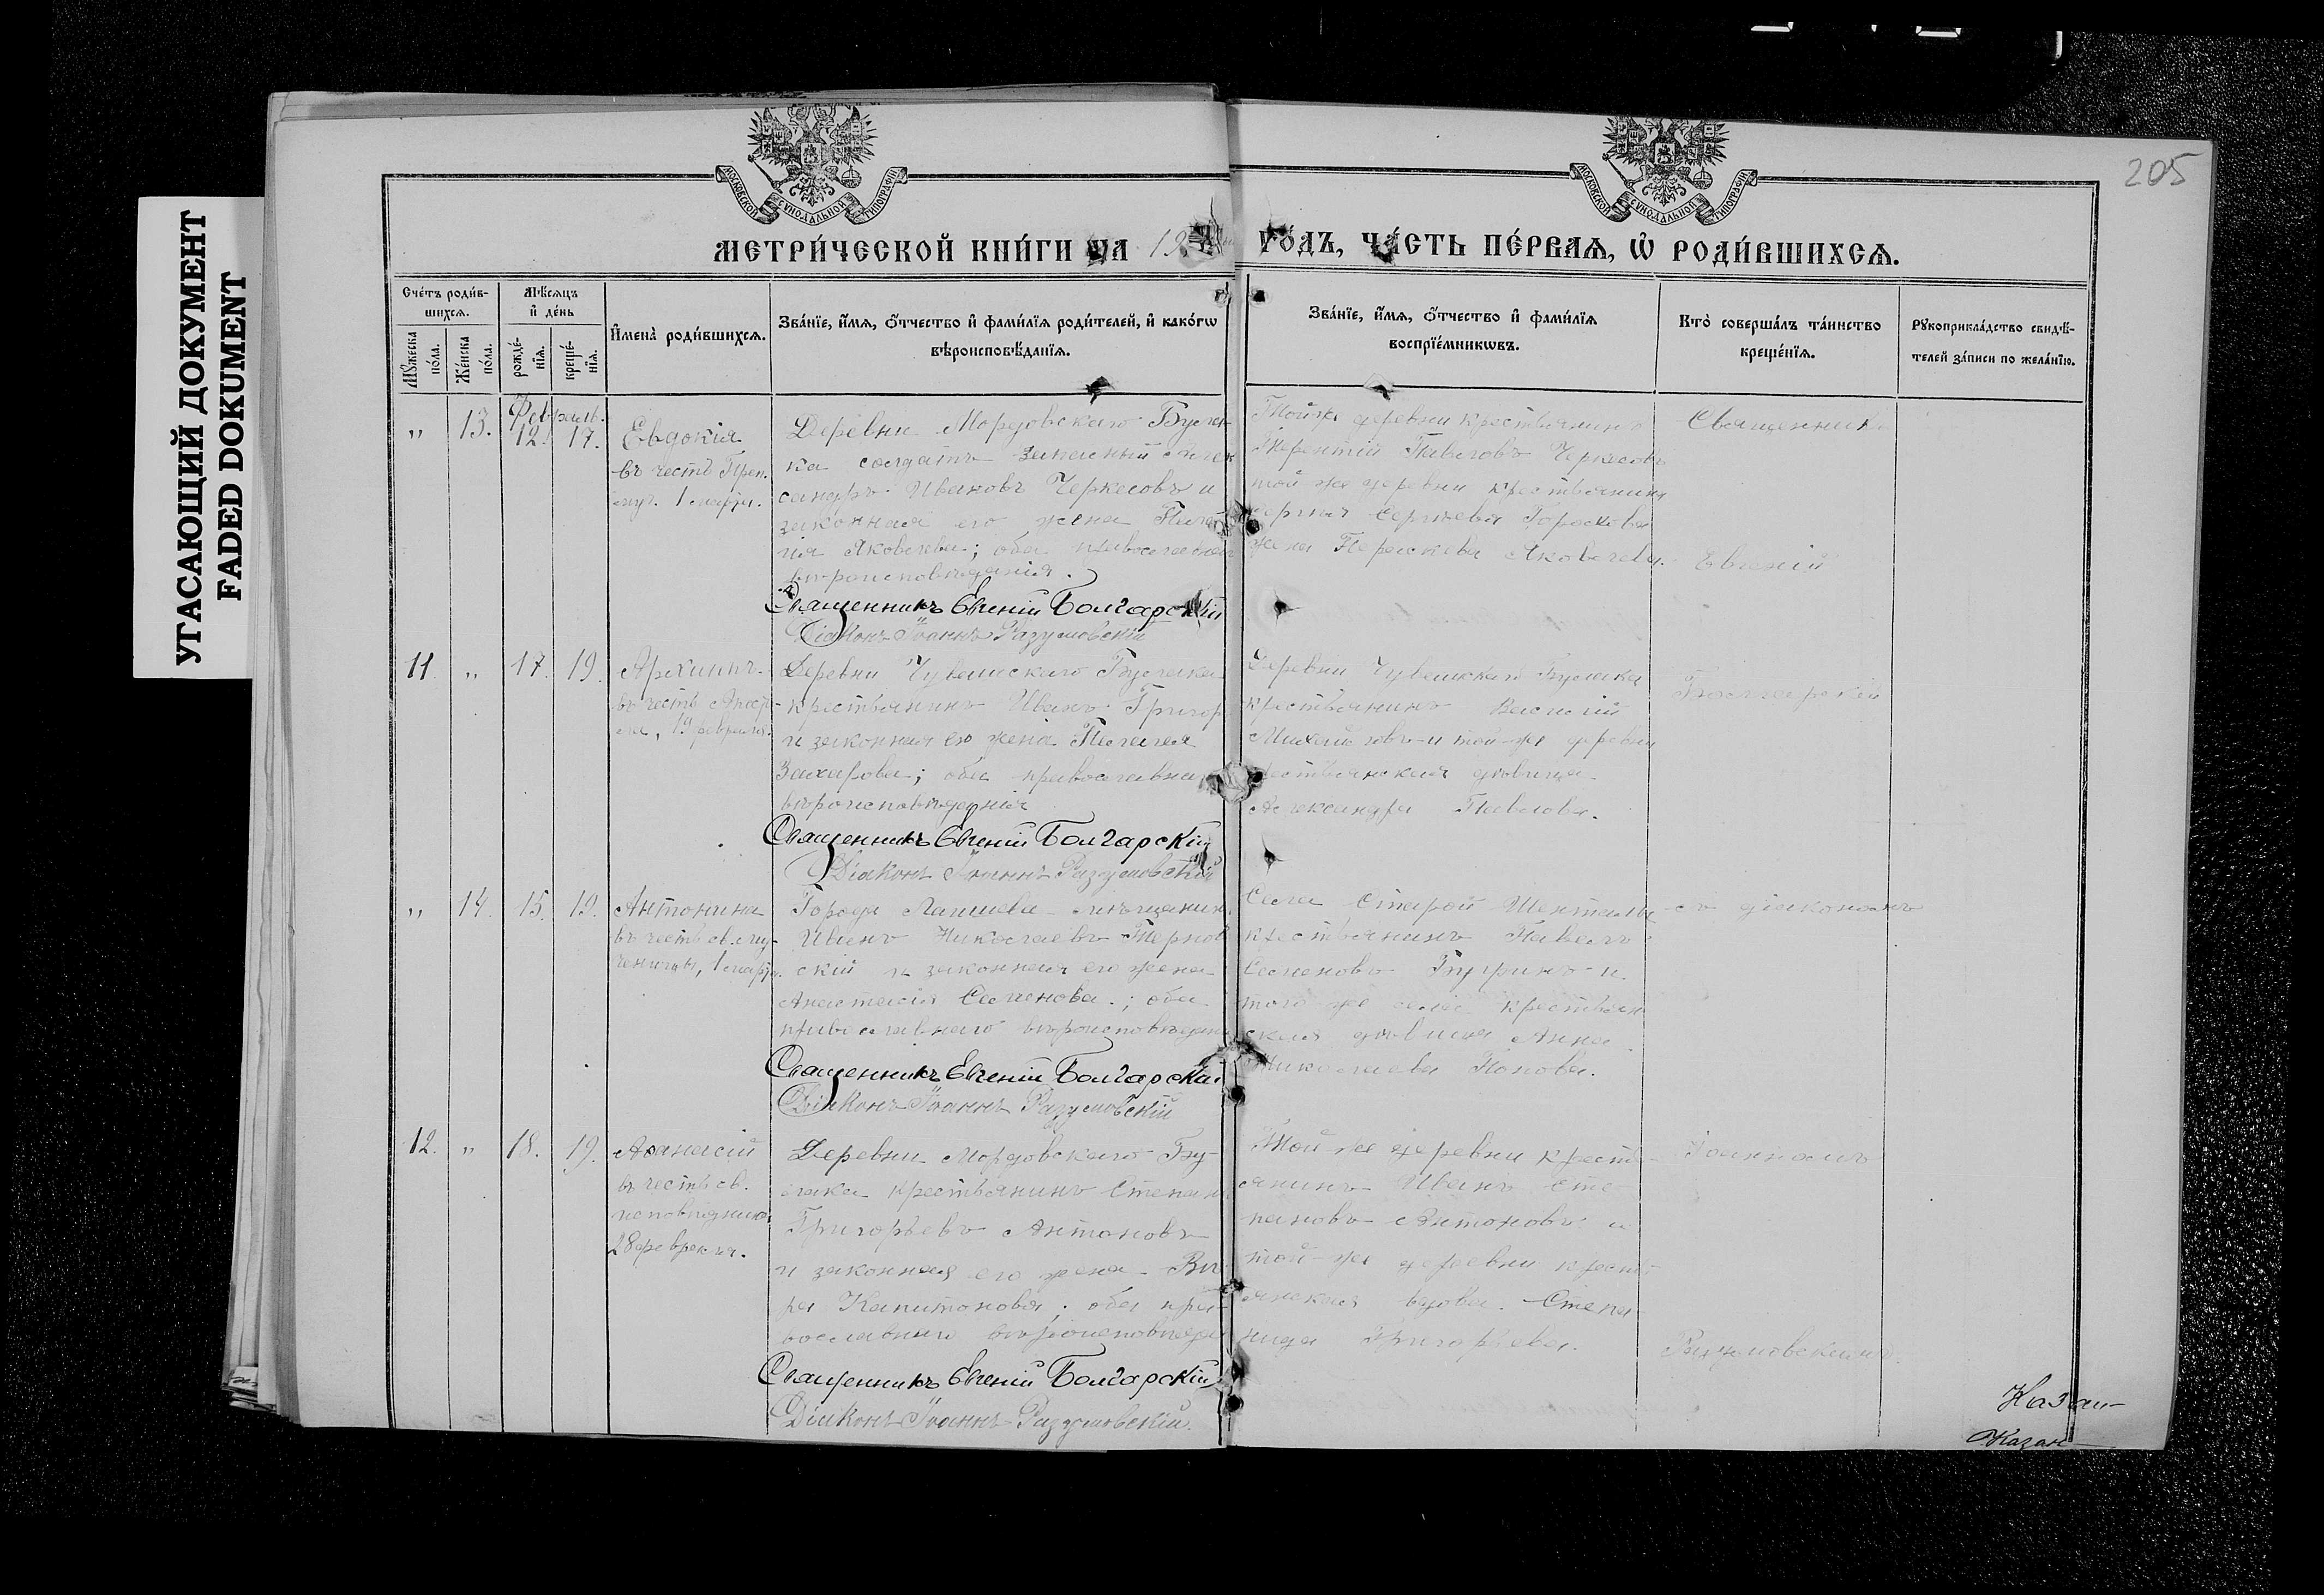 205
УГАСАЮЩИЙ ДОКУМЕНТ
FADED DOKUMENT
МОСКОВСКОЙ СѴНОДАЛЬНОЙ ТИПОГРАФІИ
МОСКОВСКОЙ СѴНОДАЛЬНОЙ ТИПОГРАФІИ
МЕТРИ́ЧЕСКОЙ КНИ́ГИ НА 19
ГО́ДЪ, ЧА́СТЬ ПЕ́РВАѦ, Ѡ҆ РОДИ́ВШИХСѦ.
Сче́тъ роди́в-
шихсѧ.
Мꙋжеска по́ла.
Же́нска по́ла.
Мѣ́сѧцъ
и҆ де́нь
рожде́-
нїѧ.
креще́-
нїѧ.
И҆мена̀ роди́вшихсѧ.
Зва́нїе, и҆́мѧ, ѻ҆́тчество и҆ фами́лїѧ роди́телей, и҆ како́гѡ
вѣроисповѣ́данїѧ.
Зва́нїе, и҆́мѧ, ѻ҆́тчество и҆ фами́лїѧ
воспрїе́мникѡвъ.
Кто̀ соверша́лъ та́инство
креще́нїѧ.
Рꙋкоприкла́дство свидѣ́-
телей за́писи по жела́нїю.
Февраль.
" 13. 12. 17.
Евдокія
въ честь Преп.
муч. 1 марта.
Деревни Мордовскаго Була-
ка солдатъ запасный Алек
сандръ Ивановъ Черкесовъ и
законная его жена Пела
гія Яковлева; оба православнаго
вѣроисповѣданія.
Священникъ Евгеній Болгарскій
Діаконъ Іоаннъ Разумовскій
Той же деревни крестьянинъ
Терентій Павловъ Черкесовъ
той же деревни крестьянина
Сергѣя Сергѣева Горшкова
жена Параскева Яковлева.
Священникъ
Евгеній
11. " 17. 19.
Архиппъ
въ честь Апост-
ола, 19 февраля.
Деревни Чувашскаго Булака
крестьянинъ Иванъ Григор
и законная его жена Пелагея
Захарова; оба православнаго
вѣроисповѣданія
Священникъ Евгеній Болгарскій
Діаконъ Іоаннъ Разумовскій
Деревни Чувашскаго Булака
крестьянинъ Василій
Михайловъ и той-же деревни
крестьянская дѣвица
Александра Павлова.
Болгарскій
" 14. 15. 19.
Антонина
въ честь св. му-
ченицы, 1 марта.
Города Лаишева мѣщанинъ
Иванъ Николаевъ Тернов
скій и законная его жена
Анастасія Семенова.; оба
православнаго вѣроисповѣдані
Священникъ Евгеній Болгарскій
Діаконъ Іоаннъ Разумовскій
Села Старой Шенталы
крестьянинъ Павелъ
Семеновъ и
того же села крестьян
ская дѣвица Анна
Николаева Попова.
съ діакономъ
12. " 18. 19.
Аѳанасій
въ честь св.
исповѣдника
28 февраля.
Деревни Мордовскаго Бу-
лака крестьянинъ Степанъ
Григорьевъ Антоновъ
и законная его жена Вѣ
ра Капитонова; оба пра-
вославнаго вѣроисповѣдан
Священникъ Евгеній Болгарскій
Діаконъ Іоаннъ Разумовскій.
Той же деревни кресть-
янинъ Иванъ Сте
пановъ Антоновъ и
той-же деревни кресть-
янская вдова Степа
нида Григорьева.
Іоанномъ
Разумовскимъ.
Казан-
Казан-